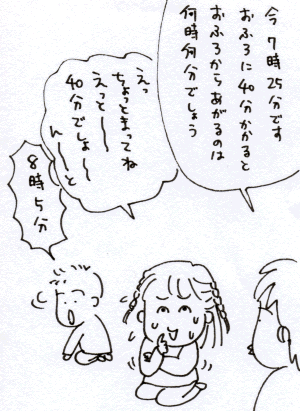 今7時25分です
おふろに40分かかると
おふろからあがるのは
何時何分でしょう
えっ
ちょっとまってね
えっと〜〜
40分でしょ〜
ん〜〜と
8時5分